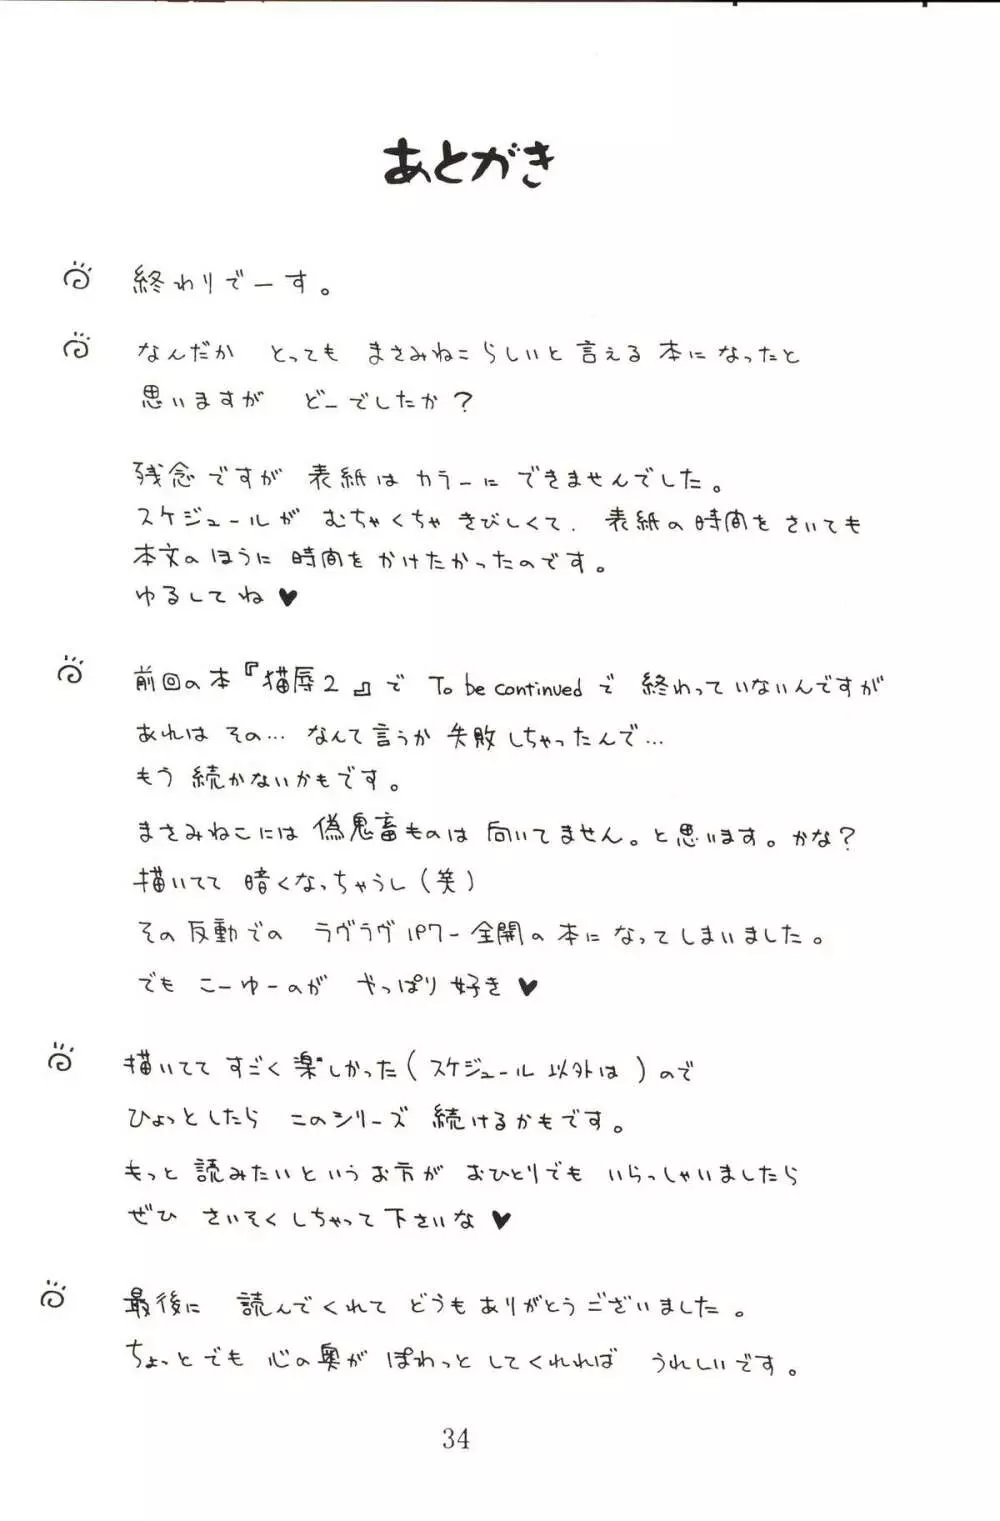 あとがき
終わりでーす。
なんだか とっても まさみねこらしいと 言える 本になったと
思いますが どーでしたか?
残念ですが 表紙は カラーに できませんでした。
スケジュールが むちゃくちゃ きびしくて、表紙の時間を さいても
本文の ほうに 時間を かけたかったのです。
ゆるしてね♥
前回の本『猫辱2』で To be continued で 終わっていないんですが
あれは その… なんて言うか 失敗しちゃったんで…
もう 続かないかもです。
まさみねこには 偽鬼畜ものは 向いてません。と思います。かな?
描いてて 暗くなっちゃうし(笑)
その 反動での ラヴラヴパワー全開の 本になってしまいました。
でも こーゆーのが やっぱり 好き♥
描いてて すごく 楽しかった(スケジュール 以外は)ので
ひょっとしたら このシリーズ 続けるかもです。
もっと 読みたいというお方が おひとりでも いらっしゃいましたら
ぜひ さいそくしちゃって 下さいな♥
最後に 読んでくれて どうもありがとうございました。
ちょっとでも 心の奥が ぽわっと してくれれば うれしいです。
34